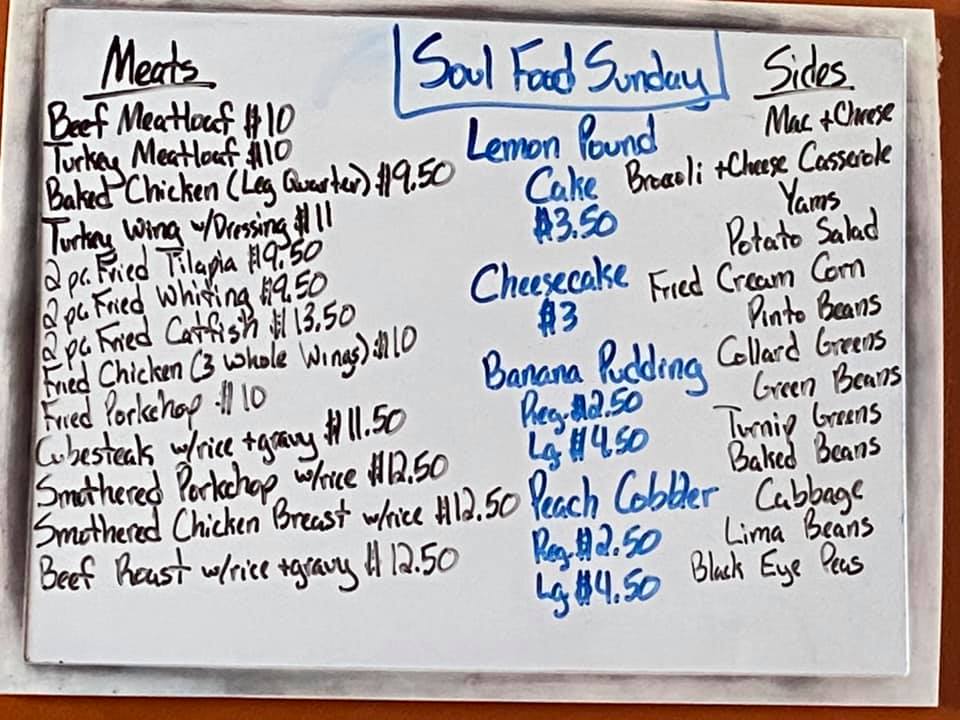 Meats
Beef Meatloaf $10
Turkey Meatloaf $10
Baked Chicken (Leg Quarter) $9.50
Turkey Wing w/Dressing $11
2 pc Fried Tilapia $9.50
2 pc Fried Whiting $9.50
2 pc Fried Catfish $13.50
Fried Chicken (3 Whole Wings) $10
Fried Porkchop $10
Cubesteak w/rice +gravy $11.50
Smothered Porkchop w/rice $12.50
Smothered Chicken Breast w/rice $12.50
Beef Roast w/rice +gravy $12.50
Soul Food Sunday
Lemon Pound
Cake
$3.50
Cheesecake
$3
Banana Pudding
Reg. $2.50
Lg $4.50
Peach Cobbler
Reg. $2.50
Lg $4.50
Sides
Mac +Cheese
Broccoli +Cheese Casserole
Yams
Potato Salad
Fried Cream Corn
Pinto Beans
Collard Greens
Green Beans
Turnip Greens
Baked Beans
Cabbage
Lima Beans
Black Eye Peas